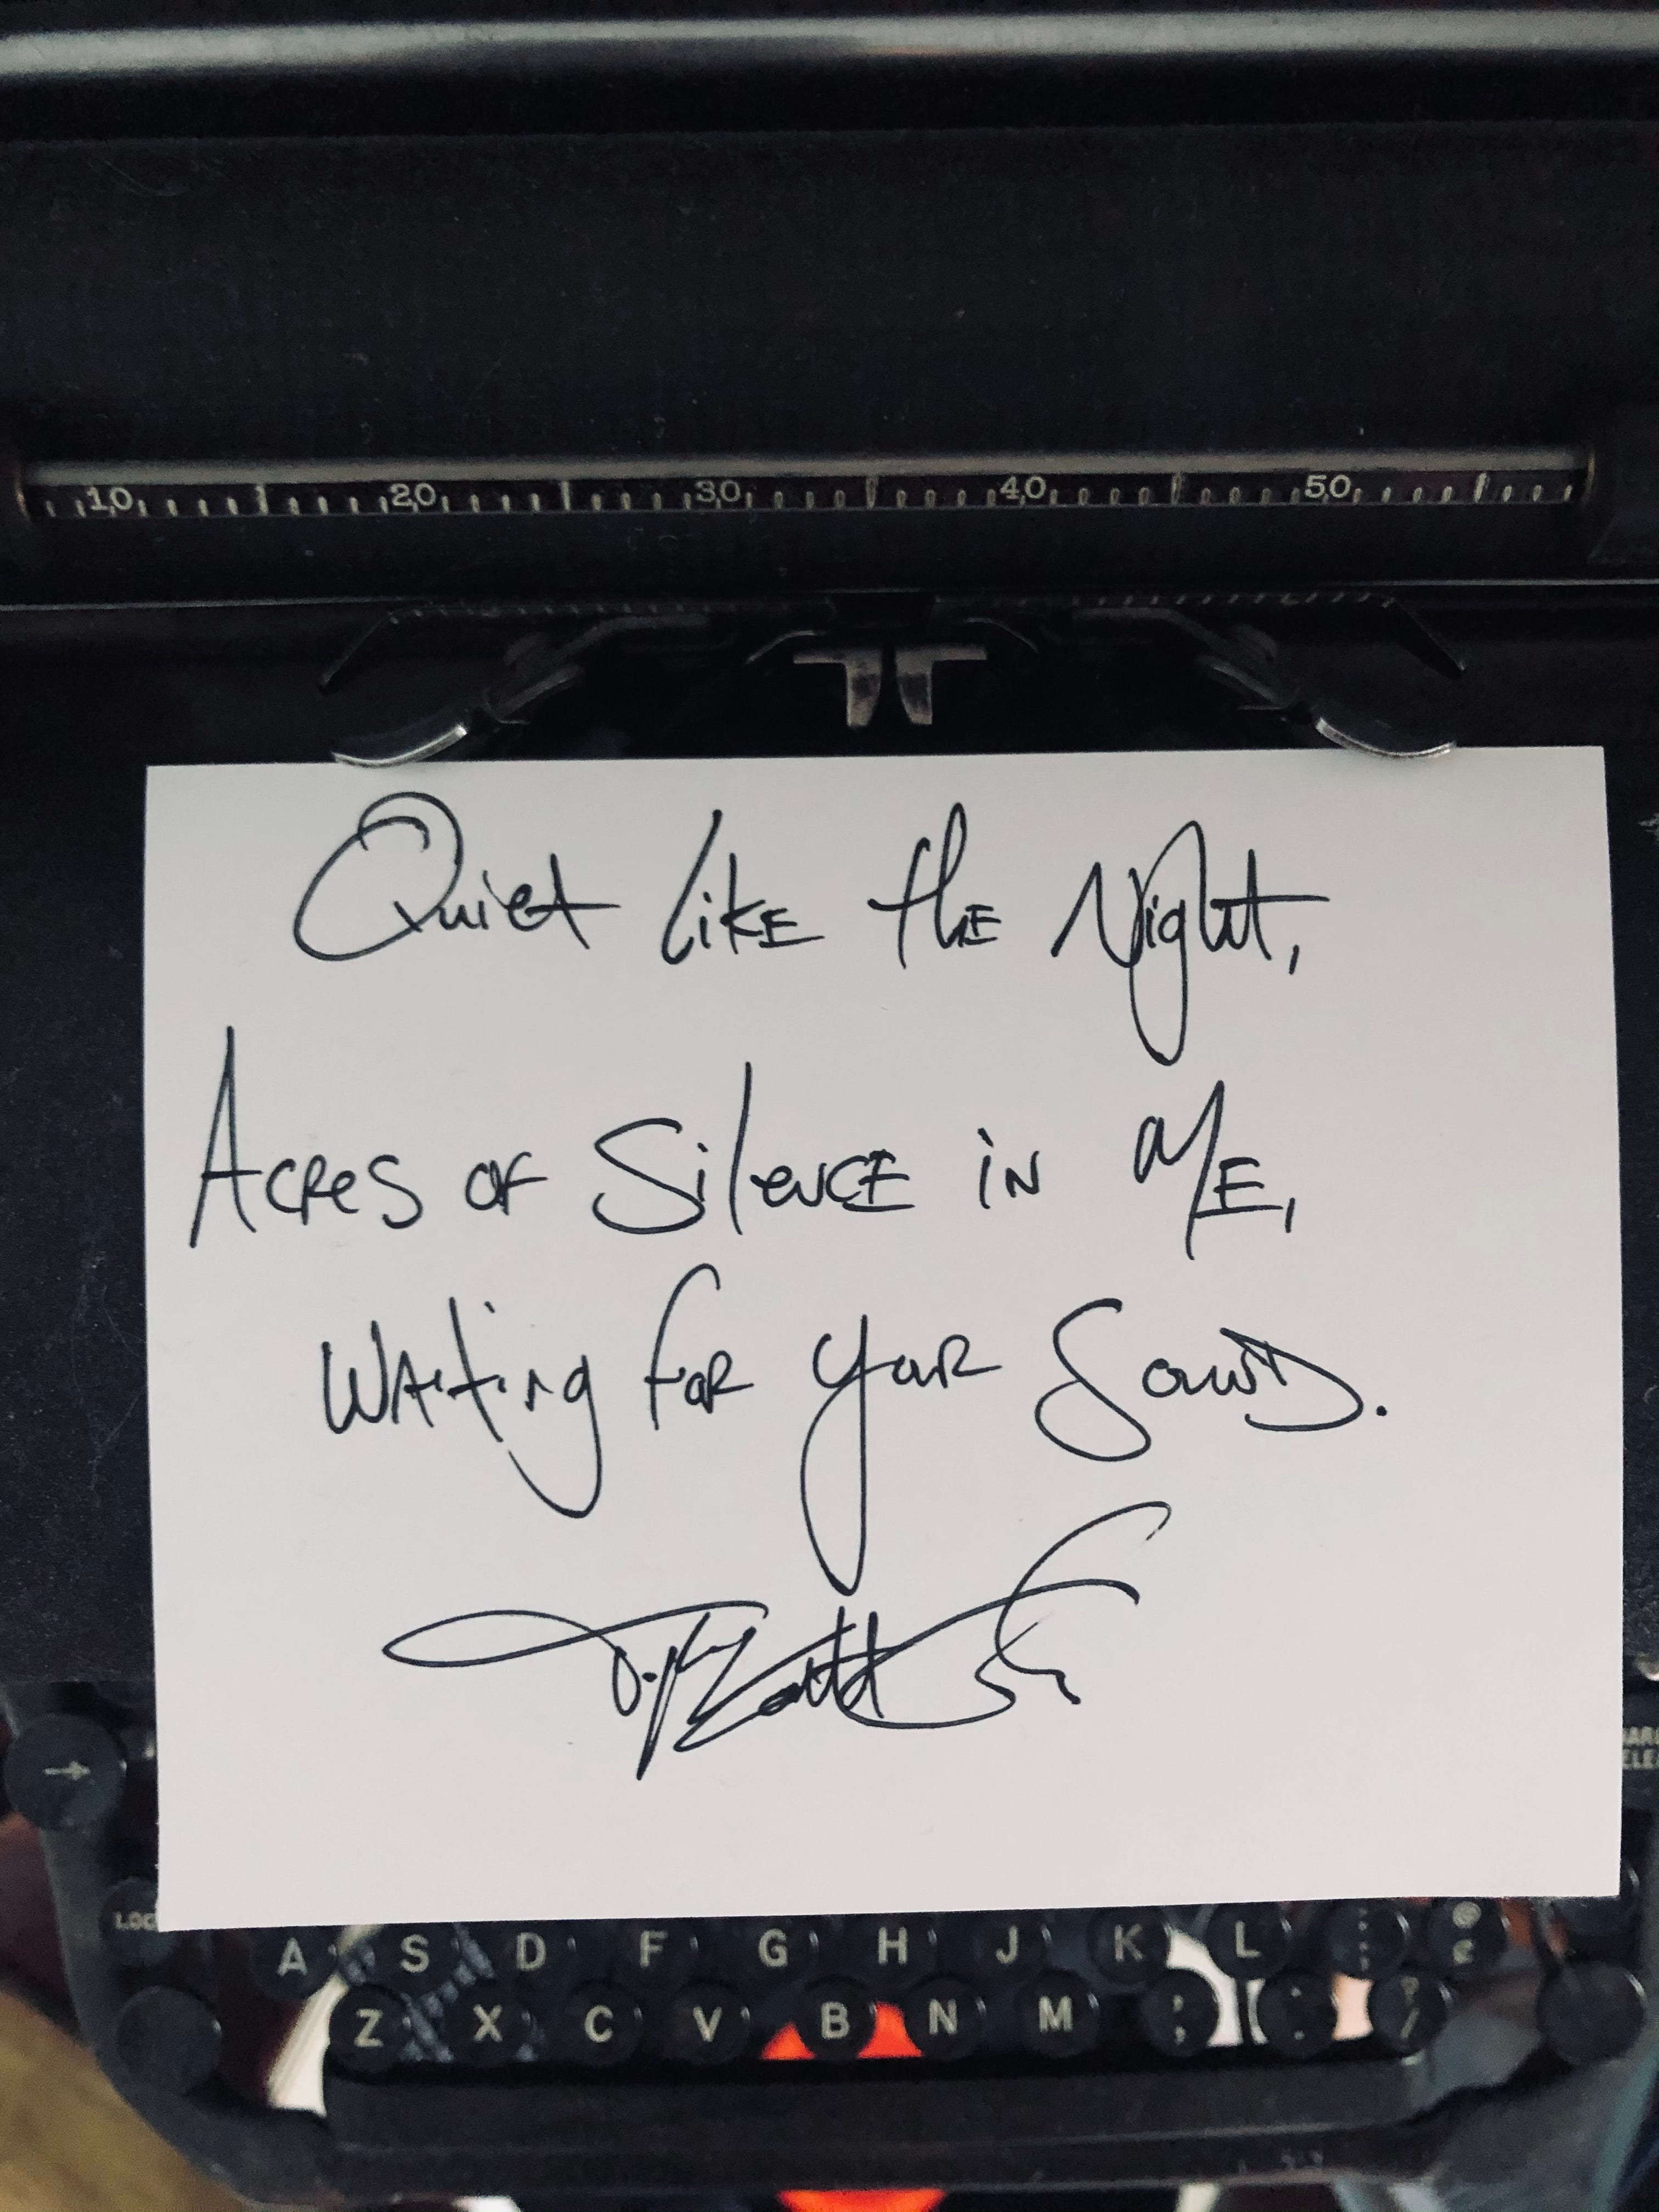 10 20 30 40 50
Quiet Like the Night,
Acres of Silence in Me,
Waiting for your Sound.
LOC
A S D F G H J K L : @ ¢
Z X C V B N M , ; . : ? /